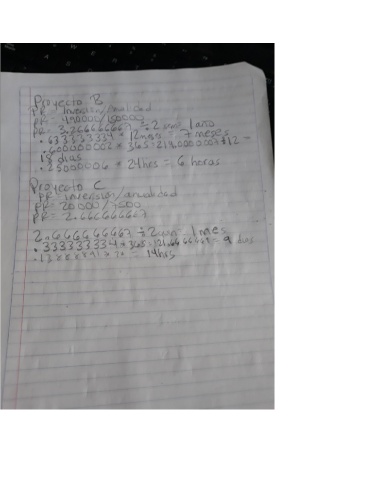 Proyecto B
PR = Inversión/anualidad
PR = 490000/150000
PR = 3.266666667 ÷ 2 1 año
.633333334 * 12 meses = 7 meses
.600000002 * 365 = 219.0000007 ÷ 12 =
18 dias
.25000006 * 24hrs = 6 horas
Proyecto C
PR = inversión/anualidad
PR = 20000/7500
PR = 2.666666667
2.666666667 ÷ 2 1 mes
.333333334 * 365 = 121.6666669 9 dias
= 14hrs